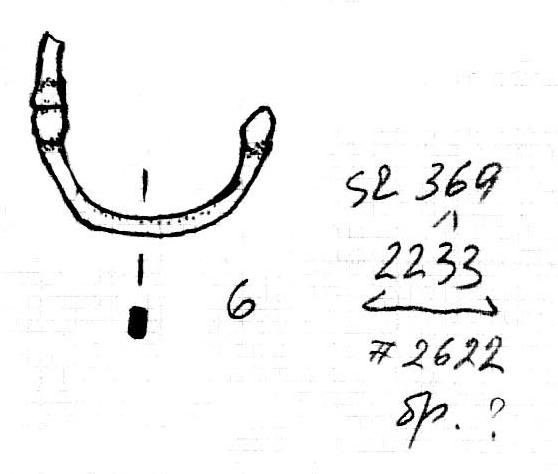 6
SR 369
^
2233
#2622
бр. ?